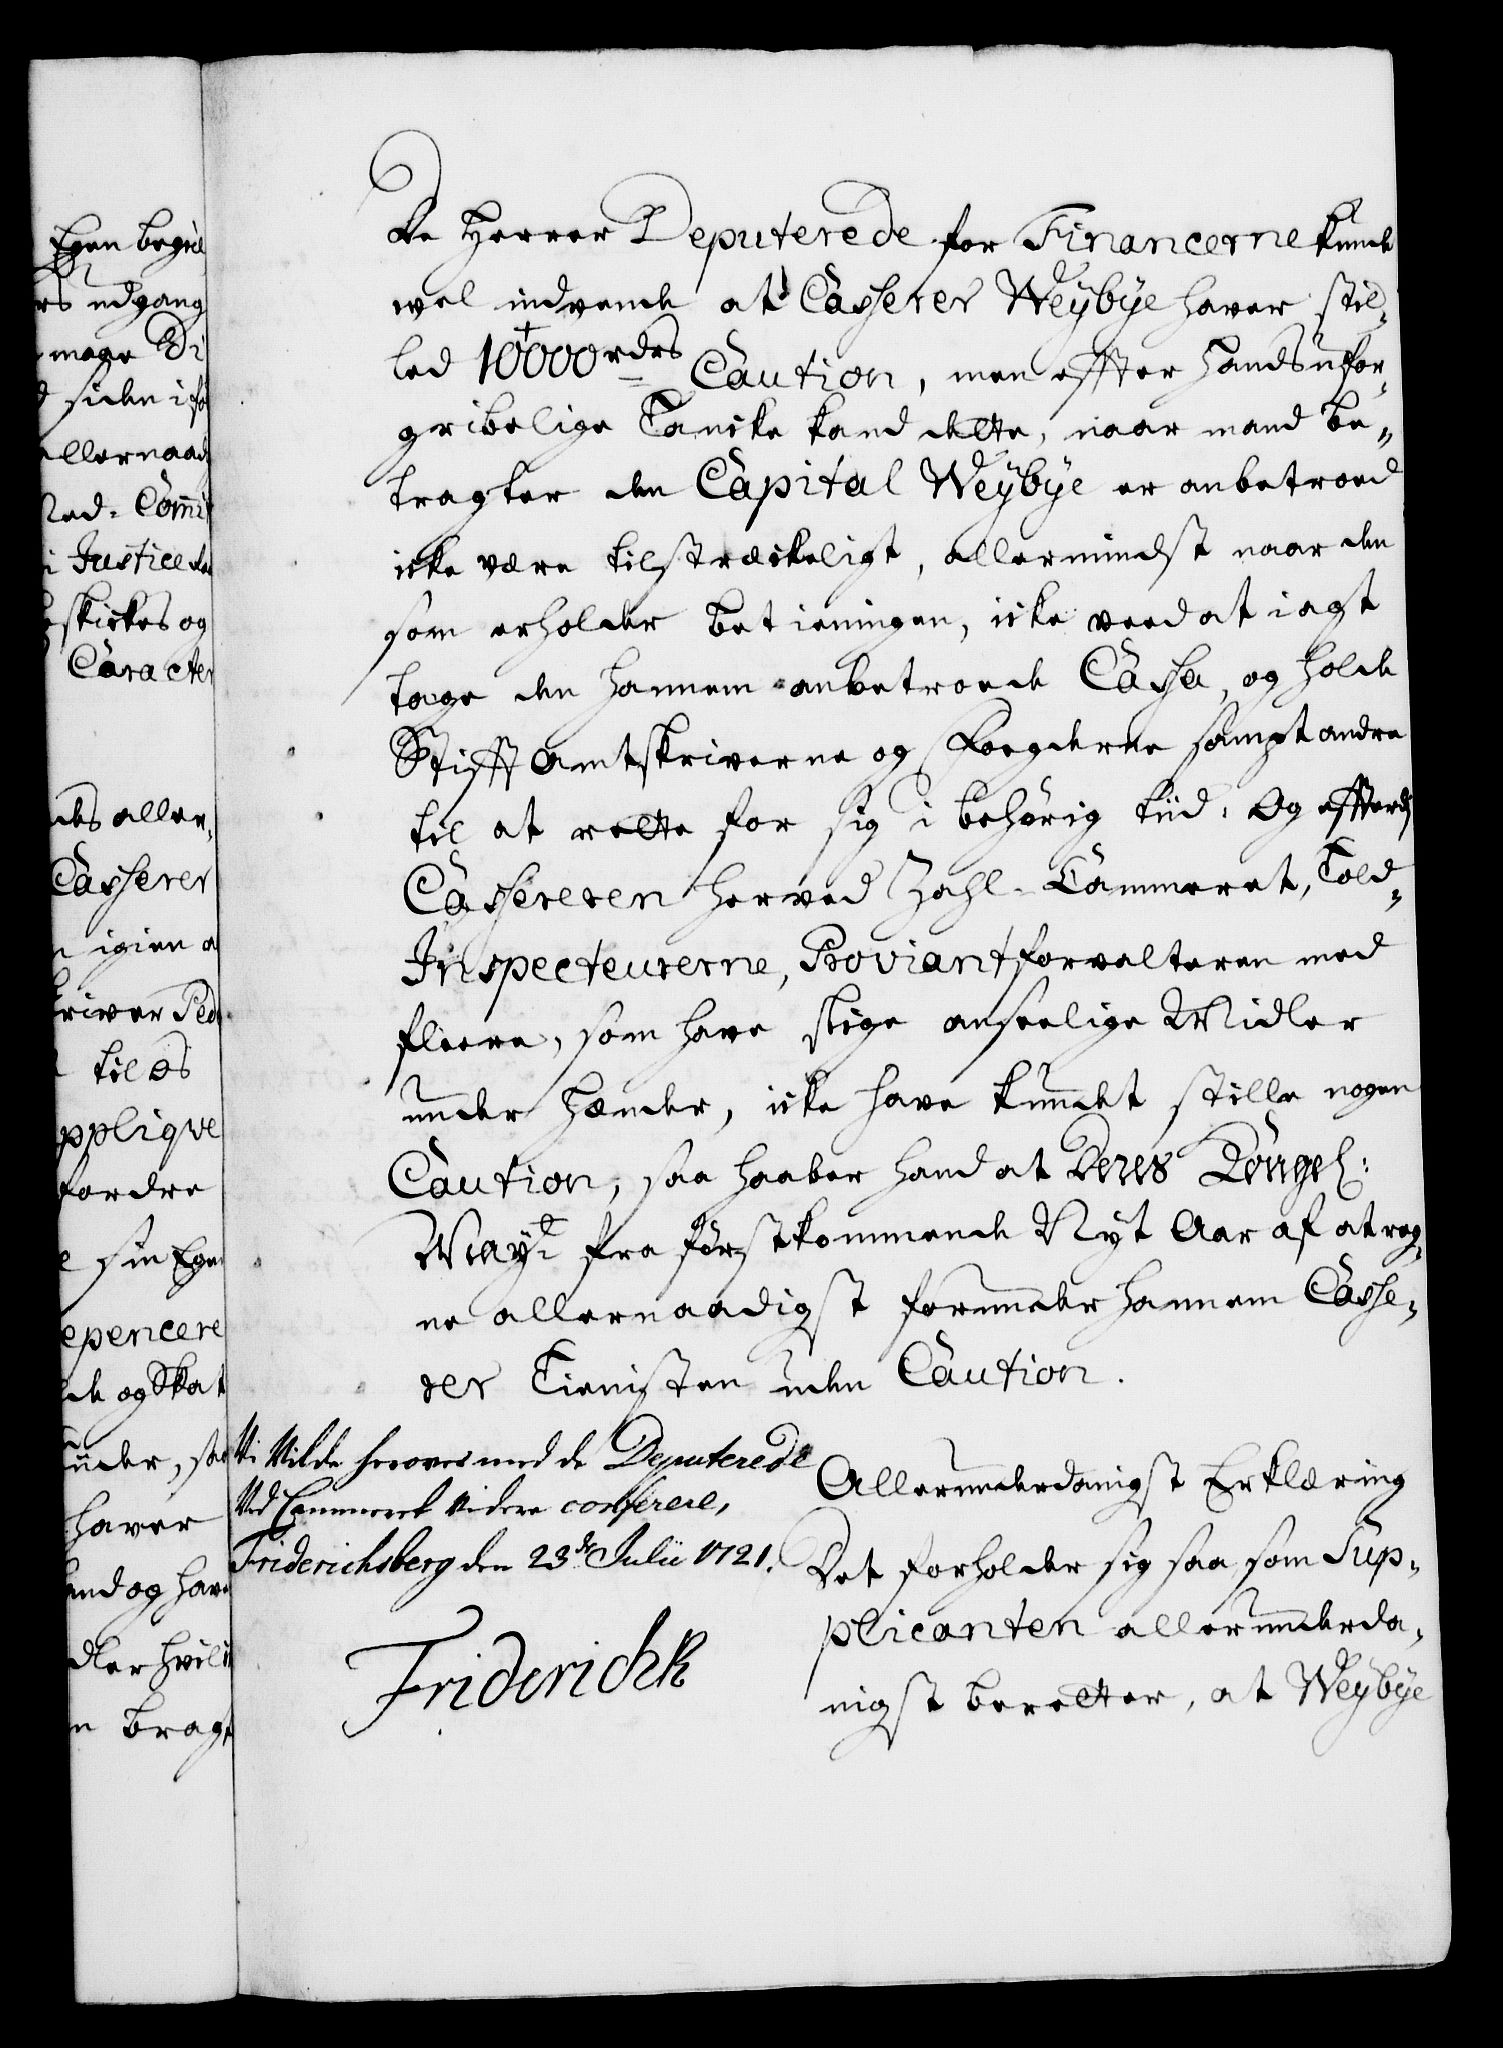 Egen begie
rs udgang
maae Di
d siden i fo
allernaad
Ned. Com̄i
i Justice
eskickes og
Caracter
des aller,
Casserer
n igien a
kriver Ped
til os
pplique
fordre
e sin Egen
epencere
de og Skat
under, saa
haver
and og have
dler hvil
n bragt
De Herrer Deputerede for Financerne kunde
vel indvende at Casserer Weybye haver stil,
led 10000 rdrs Caution, men effter Hands ufor,
gribelige Tancke kand dette, naar mand be,,
tragter den Capital Weybye er anbetroed
icke være tilstreckeligt, allermindst naar den
som erholder betieningen, icke veed at iagt
tage den hannem anbetroede Cassa, og holde
Stifft Amtskriverne og Foegderne sampt andre
til at rette for sig i behørig tiid. Og efftterdj
Cassereren her ved Zahl-Cammeret, Told,,
Inspecteurerne, Proviantforvalteren med
fleere, som have slige anseelige Midler
under Hænder, icke have kundet stille nogen
Caution, saa haaber hand at Deres Kongel:
Mayt fra førstkommende Nyt Aar af at reg,
ne allernaadigst forunder hannem Casse,
rer Tienisten uden Caution.
Vi Vilde herover med de Deputerede
Ved Cammeret videre conferere,
Friderichsberg den 23de Julii 1721.
Friderich R
Allerunderdanigst Erklæring
Det forholder sig saa som Sup,
plicanten allerunderda,
nigst beretter, at Weybye